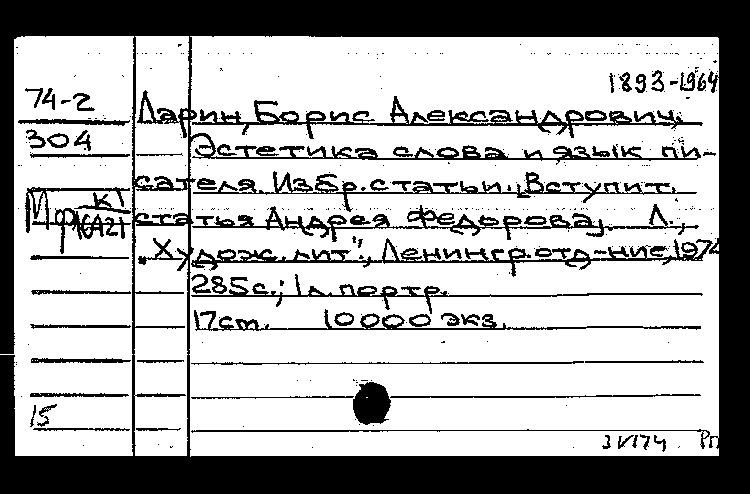 1893-1964
74-2
Ларин, Борис Александрович.
304
Эстетика слова и язык пи-
сателя. Избр. статьи. Вступит.
К1
статья Андрея Федорова. Л.,
16421
„Худож. лит", Ленингр. отд-ние, 1974
285с.; 1 л. портр.
17см. 10000 экз.
15
3 VI 74 Рп